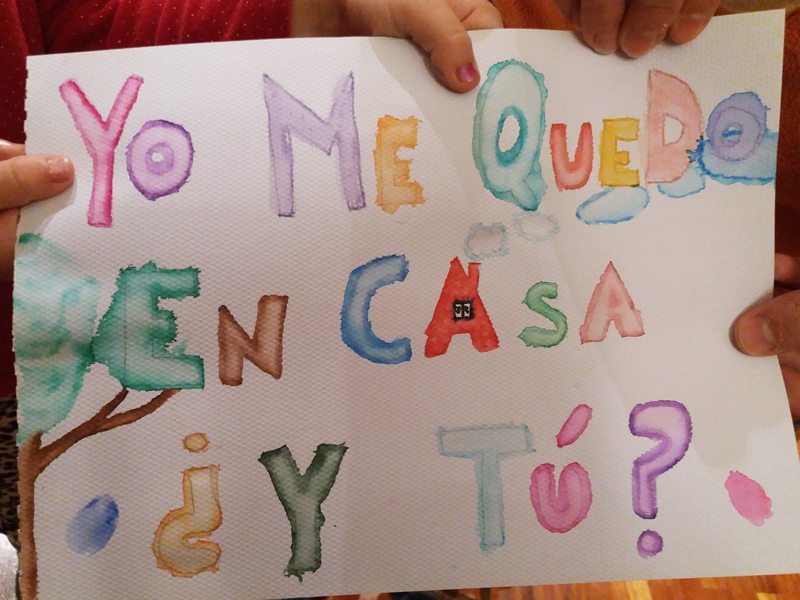 Yo Me QUEDO
EN CASA
¿Y TÚ?